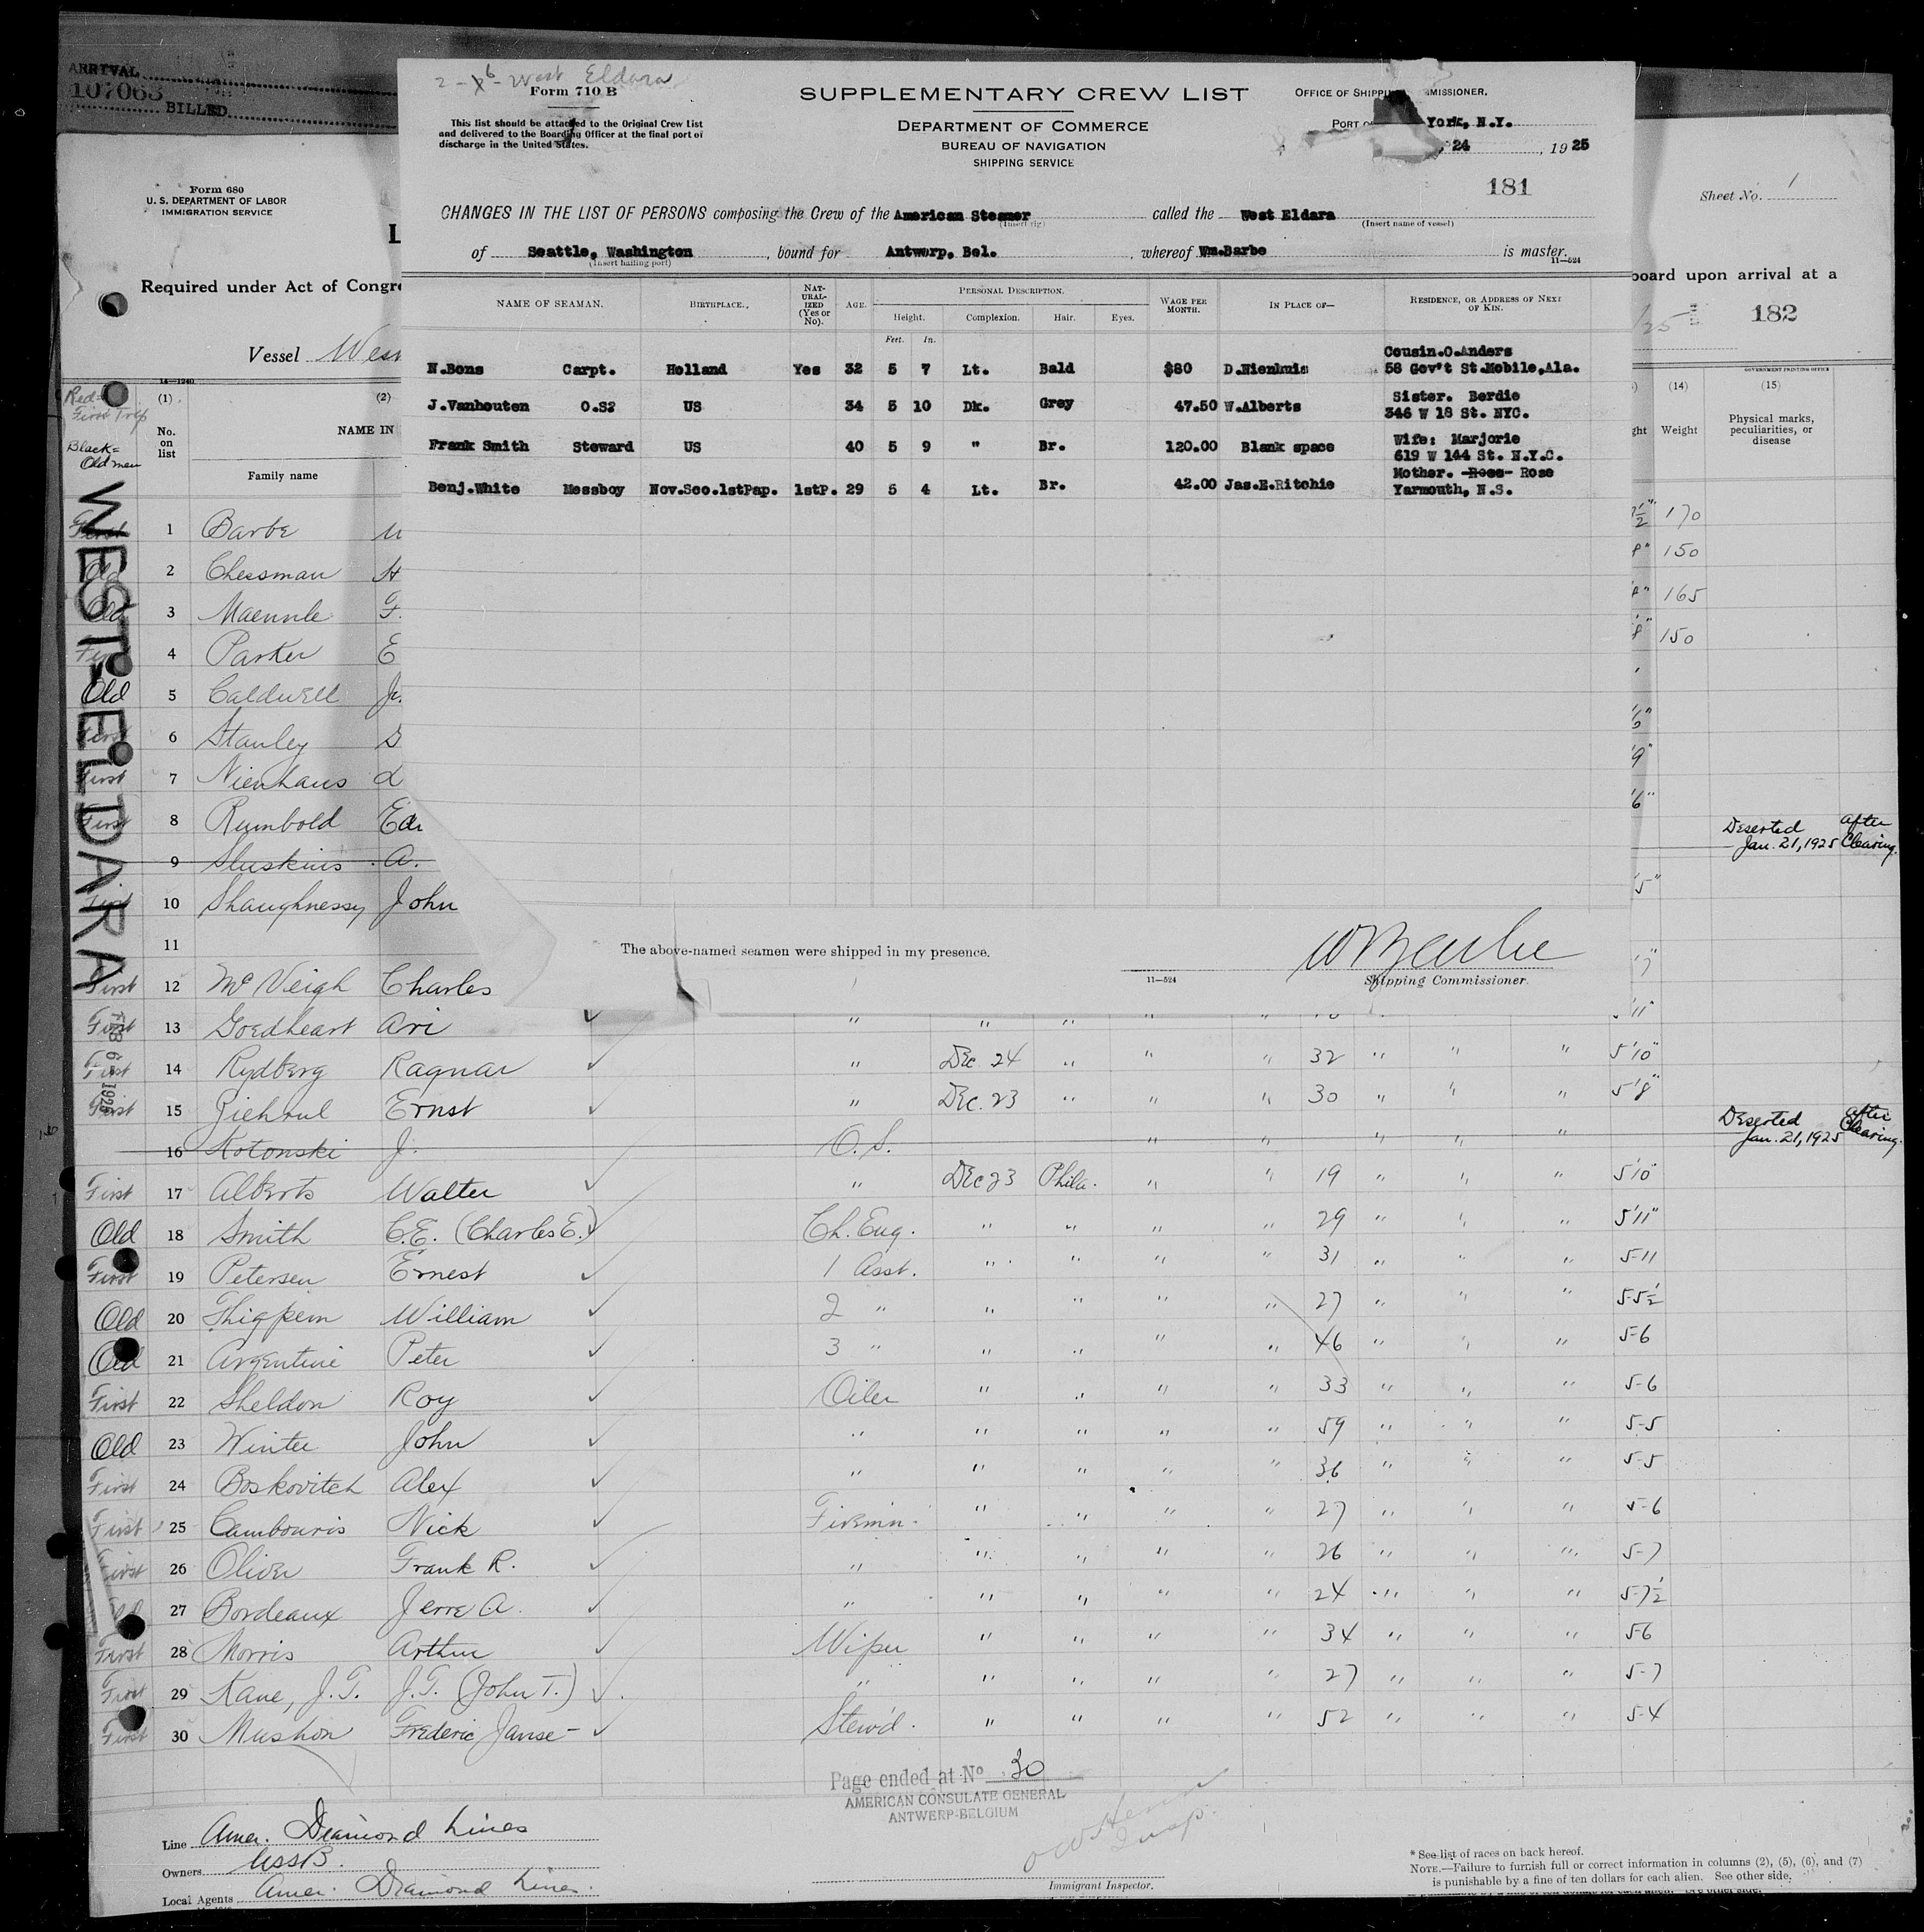 ARRIVAL
107063
BILLED
2 - West Eldara
Form 710 B
This list should be attached to the Original Crew List
and delivered to the Boarding Officer at the final port of
discharge in the United States.
SUPPLEMENTARY CREW LIST
DEPARTMENT OF COMMERCE
BUREAU OF NAVIGATION
SHIPPING SERVICE
OFFICE OF SHIPPING COMMISSIONER,
PORT OF York, N.Y.
24, 1925
181
CHANGES IN THE LIST OF PERSONS composing the Crew of the American Steamer called the West Eldara
(Insert rig) (Insert name of vessel)
of Seattle, Washington, bound for Antwerp, Bel., whereof Wm.Barbe is master.
(Insert hailing port) 11—524
NAME OF SEAMAN. BIRTHPLACE. NATURALIZED (Yes or No). AGE. PERSONAL DESCRIPTION. WAGE PER MONTH. IN PLACE OF— RESIDENCE, OR ADDRESS OF NEXT OF KIN.
Height. Complexion. Hair. Eyes.
Feet. In.
N.Bons Carpt. Holland Yes 32 5 7 Lt. Bald $80 D.Nienhuis Cousin.O.Anders
58 Gov't St.Mobile,Ala.
J.Vanhouten O.S? US 34 5 10 Dk. Grey 47.50 W.Alberts Sister. Berdie
346 W 18 St. NYC.
Frank Smith Steward US 40 5 9 " Br. 120.00 Blank space Wife: Marjorie
619 W 144 St. N.Y.C.
Benj.White Messboy Nov.Sco.1stPap. 1stP. 29 5 4 Lt. Br. 42.00 Jas.E.Ritchie Mother. Rose
Yarmouth, N.S.
The above-named seamen were shipped in my presence.
WBarbe
11—524 Shipping Commissioner.
Form 680
U. S. DEPARTMENT OF LABOR
IMMIGRATION SERVICE
Sheet No. 1
L
Required under Act of Congre
board upon arrival at a
/25 182
Vessel West
14—1240
GOVERNMENT PRINTING OFFICE
Red=
First Trip
Black=
Old men
(1) (2) (14) (15)
No. on list NAME IN Weight Physical marks, peculiarities, or disease
Family name
WEST ELDARA
FEB 6 - 1925
First 1 Barbe 170
Old 2 Chessman H 8" 150
Old 3 Maennle F. 165
First 4 Parker E 8" 150
Old 5 Caldwell Ja.
First 6 Stanley S 6"
First 7 Nienhaus d 9"
First 8 Rumbold Edi 6"
9 Sluskins A. Deserted after
Jan. 21, 1925 Clearing.
First 10 Shaughnessy John 5"
11
First 12 McVeigh Charles
First 13 Goedheart Ari " " " " " 11"
First 14 Rydberg Ragnar " Dec 24 " " " 32 " " " 5'10"
First 15 Ziehrul Ernst " Dec. 23 " " " 30 " " " 5'8"
16 Kotonski J. O.S. " " " " " Deserted after
Jan. 21, 1925 Clearing.
First 17 Alberts Walter " Dec 23 Phila. " " 19 " " " 5'10"
Old 18 Smith C.E. (Charles E.) Ch. Eng. " " " " 29 " " " 5'11"
First 19 Petersen Ernest 1 Asst. " " " " 31 " " " 5-11
Old 20 Thigpem William 2 " " " " " 27 " " " 5-5½
Old 21 Argentine Peter 3 " " " " " 46 " " " 5-6
First 22 Sheldon Roy Oiler " " " " 33 " " " 5-6
Old 23 Winter John " " " " " 59 " " " 5-5
First 24 Boskovitch Alex " " " " " 36 " " " 5-5
First 25 Cambouris Nick Firemn. " " " " 27 " " " 5-6
First 26 Oliver Frank R. " " " " " 26 " " " 5-7
27 Bordeaux Jerre A. " " " " " 24 " " " 5-7½
First 28 Morris Arthur Wiper " " " " 34 " " " 5-6
First 29 Kane, J.T. J.T. (John T.) " " " " " 27 " " " 5-7
First 30 Mushon Frederic Janse - Stew'd. " " " " 52 " " " 5-4
Page ended at No 30
AMERICAN CONSULATE GENERAL
ANTWERP-BELGIUM
Insp.
Line Amer. Diamond Lines
Owners USSB.
Local Agents Amer. Diamond Lines.
Immigrant Inspector.
* See list of races on back hereof.
NOTE.—Failure to furnish full or correct information in columns (2), (5), (6), and (7)
is punishable by a fine of ten dollars for each alien. See other side.